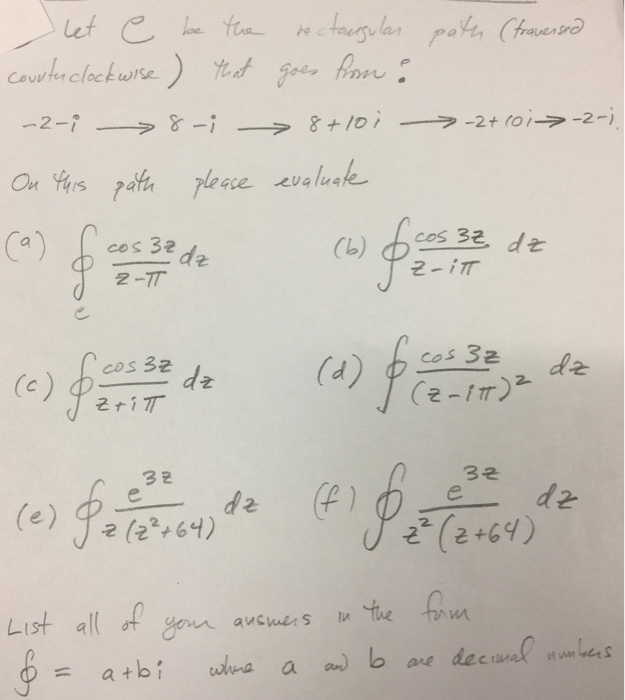 Let C be the rectangular path (traversed
counterclockwise) that goes from:
-2-i → 8-i → 8+10i → -2+10i → -2-i.
On this path please evaluate
(a) ∮_C cos 3z / (z-π) dz (b) ∮ cos 3z / (z-iπ) dz
(c) ∮ cos 3z / (z+iπ) dz (d) ∮ cos 3z / (z-iπ)² dz
(e) ∮ e^{3z} / (z(z²+64)) dz (f) ∮ e^{3z} / (z²(z+64)) dz
List all of your answers in the form
∮ = a+bi where a and b are decimal numbers